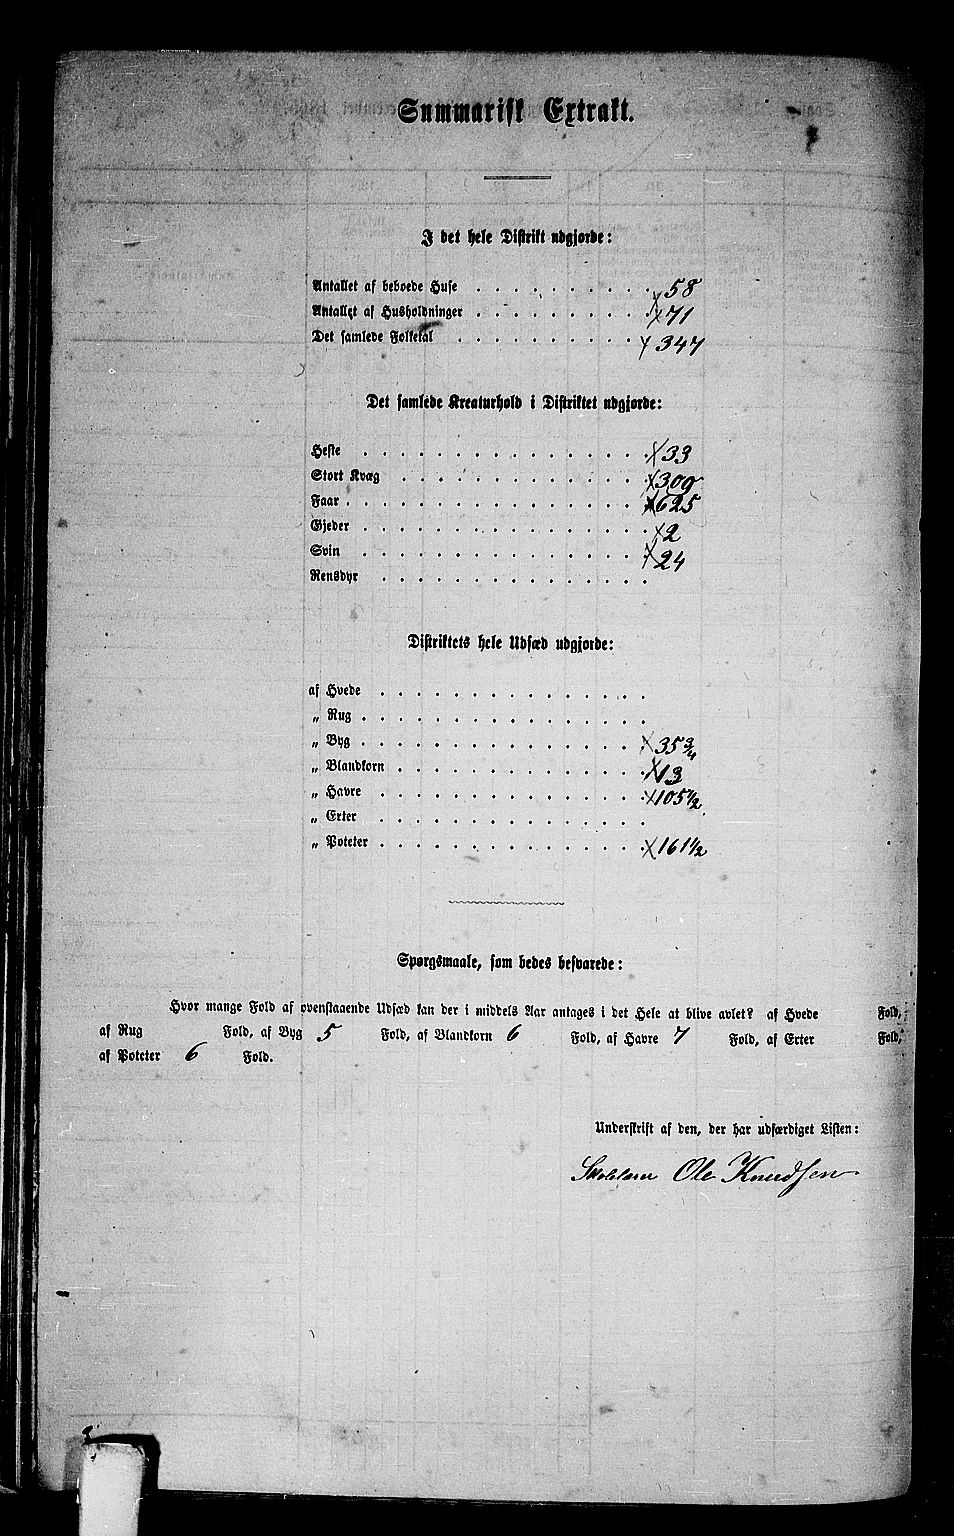 Summarisk Extrakt.
I det hele Distrikt udgjorde:
Antallet af beboede Huse . . . . . . . . . . 58
Antallet af Husholdninger . . . . . . . . . . 71
Det samlede Folketal . . . . . . . . . . . 347
Det samlede Kreaturhold i Distriktet udgjorde:
Heste . . . . . . . . . . . . . . . . 33
Stort Kvæg . . . . . . . . . . . . . . 309
Faar . . . . . . . . . . . . . . . . . 625
Gjeder . . . . . . . . . . . . . . . . 2
Svin . . . . . . . . . . . . . . . . 24
Rensdyr . . . . . . . . . . . . . . .
Distriktets hele Udsæd udgjorde:
af Hvede . . . . . . . . . . . . . . .
„ Rug . . . . . . . . . . . . . . . .
„ Byg . . . . . . . . . . . . . . . . 35 3/4
„ Blandkorn . . . . . . . . . . . . . . 13
„ Havre . . . . . . . . . . . . . . . 105 1/2
„ Erter . . . . . . . . . . . . . . .
„ Poteter . . . . . . . . . . . . . . . 161 1/2
Spørgsmaale, som bedes besvarede:
Hvor mange Fold af ovenstaaende Udsæd kan der i middels Aar antages i det Hele at blive avlet? af Hvede Fold,
af Rug Fold, af Byg 5 Fold, af Blandkorn 6 Fold, af Havre 7 Fold, af Erter Fold,
af Poteter 6 Fold.
Underskrift af den, der har udfærdiget Listen:
Ole Knudsen